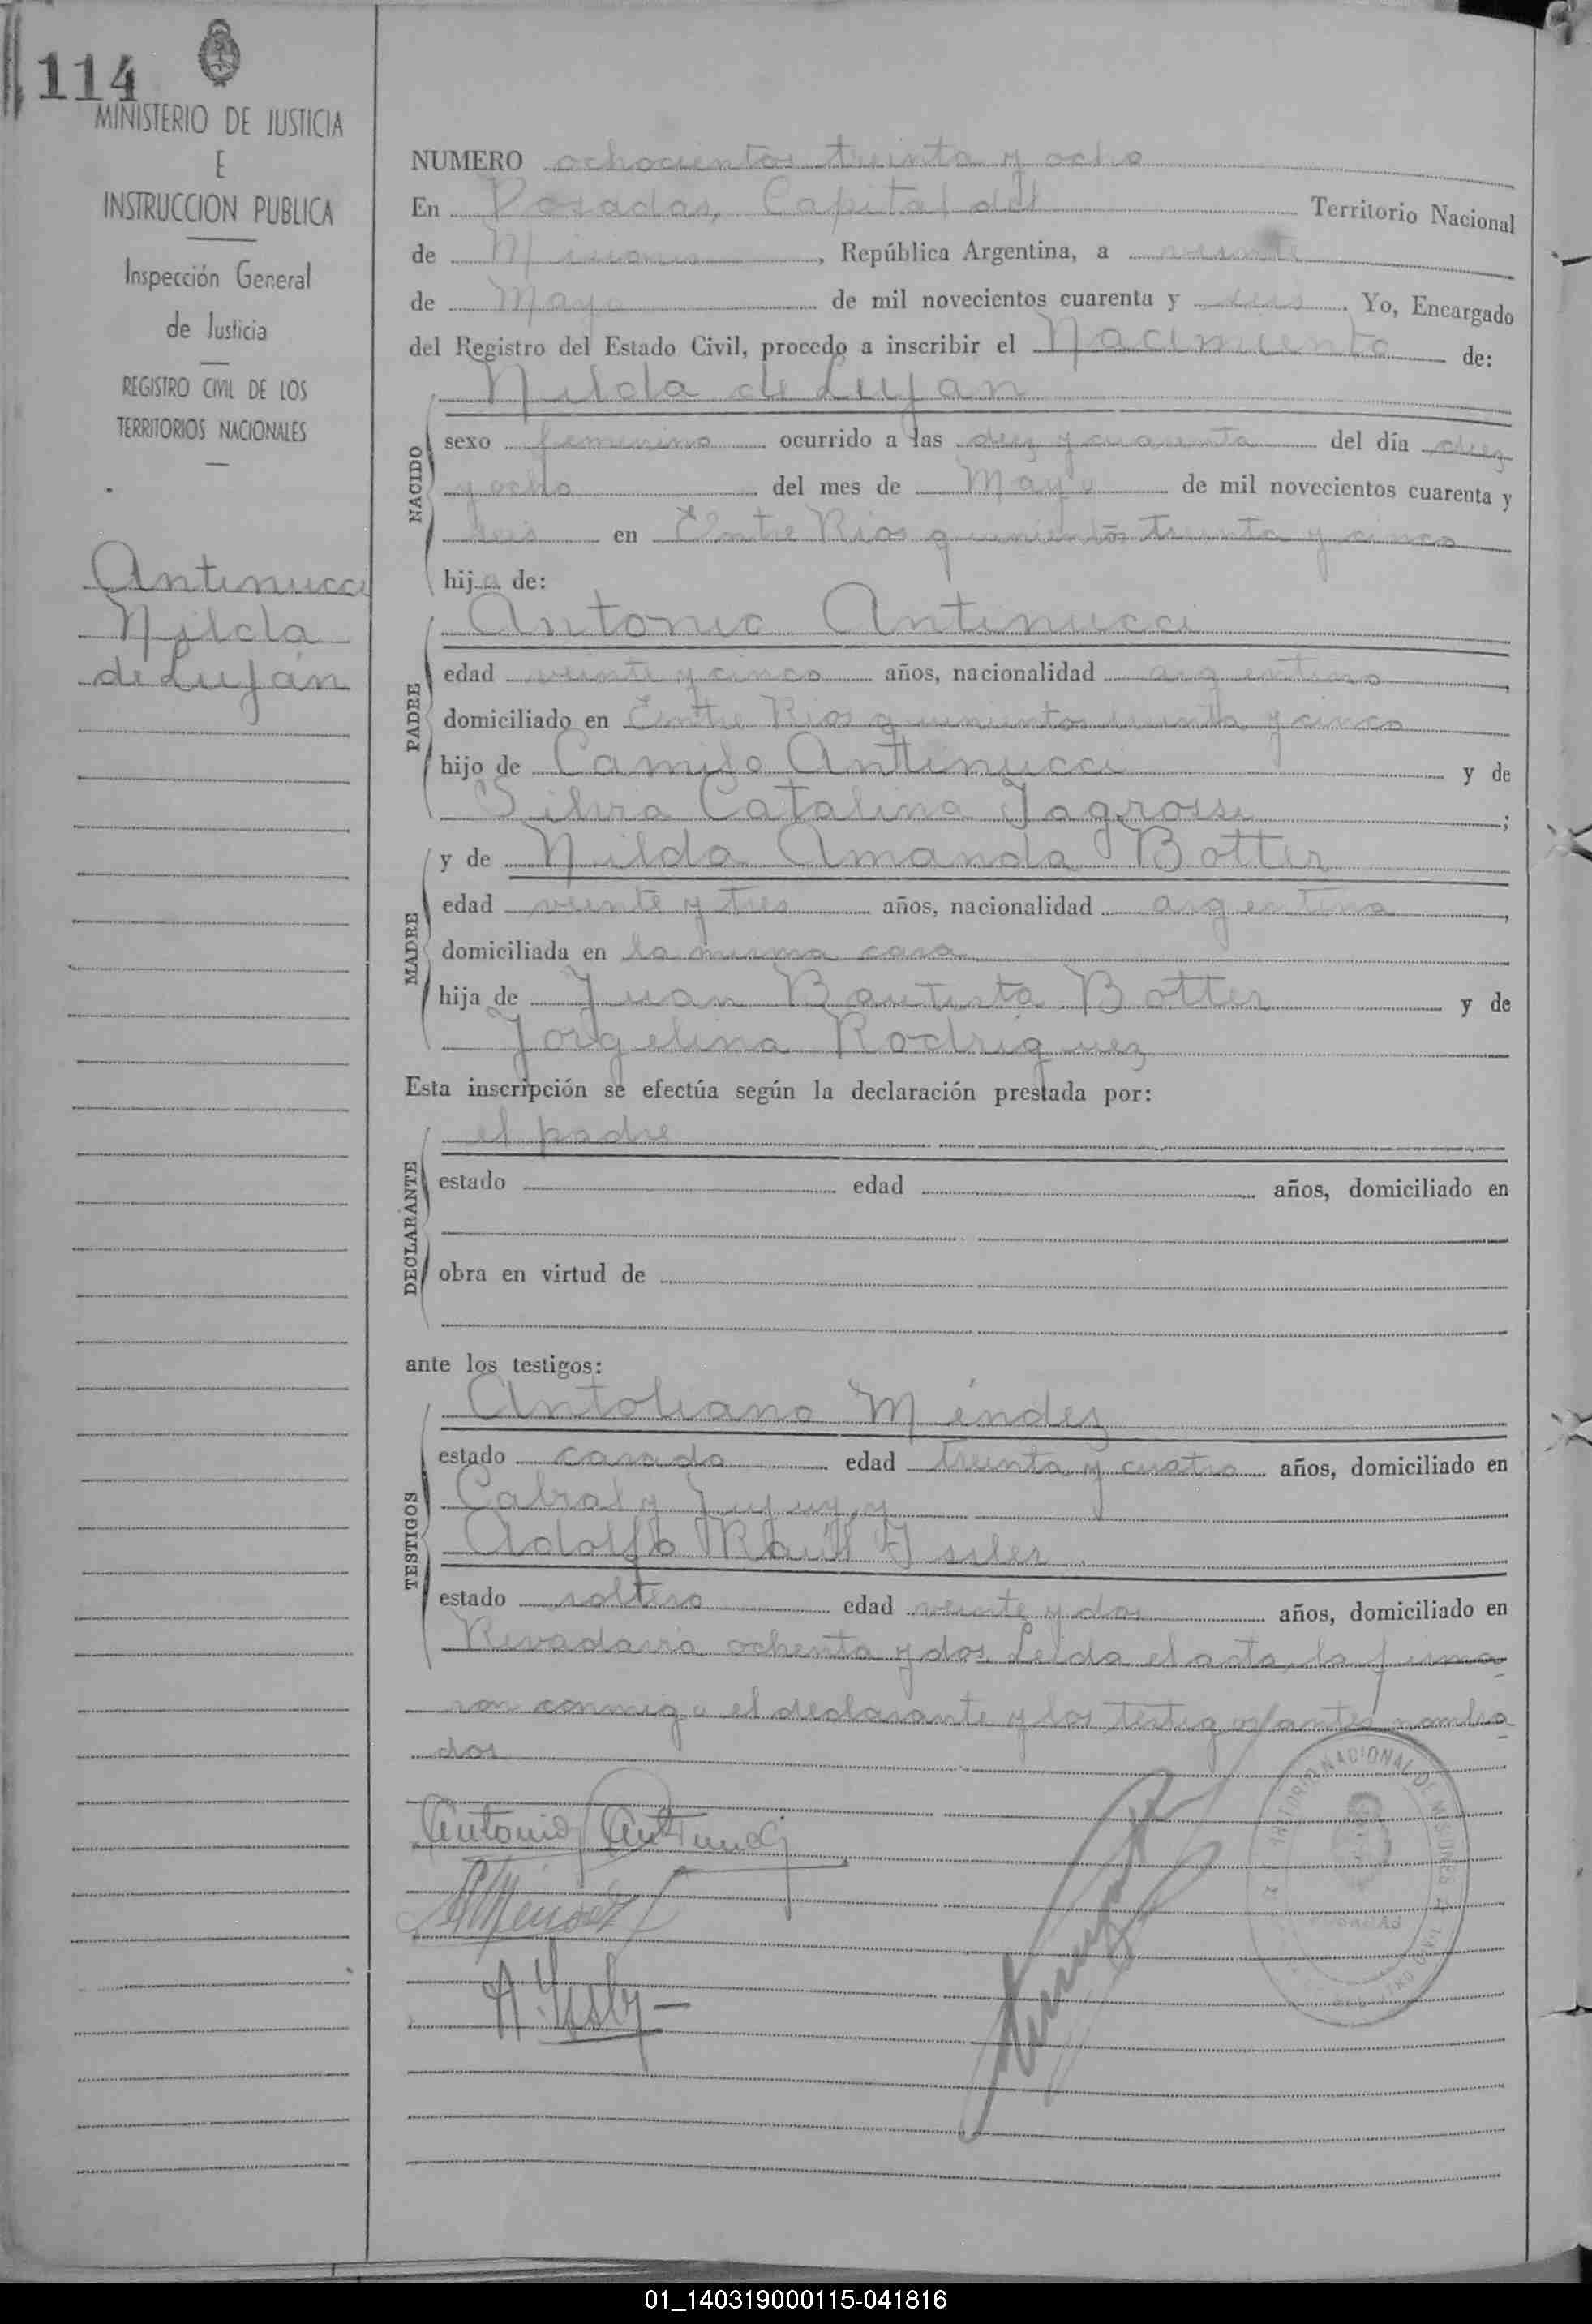 114
MINISTERIO DE JUSTICIA
E
INSTRUCCION PUBLICA
Inspección General
de Justicia
REGISTRO CIVIL DE LOS
TERRITORIOS NACIONALES
Antinucci
Nilda
de Luján
NUMERO ochocientos treinta y ocho
En Posadas, Capital del Territorio Nacional
de Misiones, República Argentina, a veinte
de Mayo de mil novecientos cuarenta y seis. Yo, Encargado
del Registro del Estado Civil, procedo a inscribir el Nacimiento de:
NACIDO
Nilda de Lujan
sexo femenino ocurrido a las diez y cuarenta del día diez
y ocho del mes de Mayo de mil novecientos cuarenta y
seis en Entre Rios quinientos treinta y cinco
hija de:
PADRE
Antonio Antinucci
edad veinte y cinco años, nacionalidad argentino,
domiciliado en Entre Rios quinientos treinta y cinco
hijo de Camilo Antinucci y de
Silvia Catalina Tagrossi;
MADRE
y de Nilda Amanda Botter
edad veinte y tres años, nacionalidad argentina,
domiciliada en la misma casa
hija de Juan Bautista Botter y de
Jorgelina Rodriguez
Esta inscripción se efectúa según la declaración prestada por:
DECLARANTE
el padre
estado edad años, domiciliado en
obra en virtud de
ante los testigos:
TESTIGOS
Antoliano Méndez
estado casado edad treinta y cuatro años, domiciliado en
Cabral y Jujuy y
Adolfo Raúl
estado soltero edad veinte y dos años, domiciliado en
Rivadavia ochenta y dos. Leida el acta, la firma
ron conmigo el declarante y los testigos antes nombra
dos
Antonio Antinucci
Méndez
TERRITORIO NACIONAL DE MISIONES
POSADAS
01_140319000115-041816